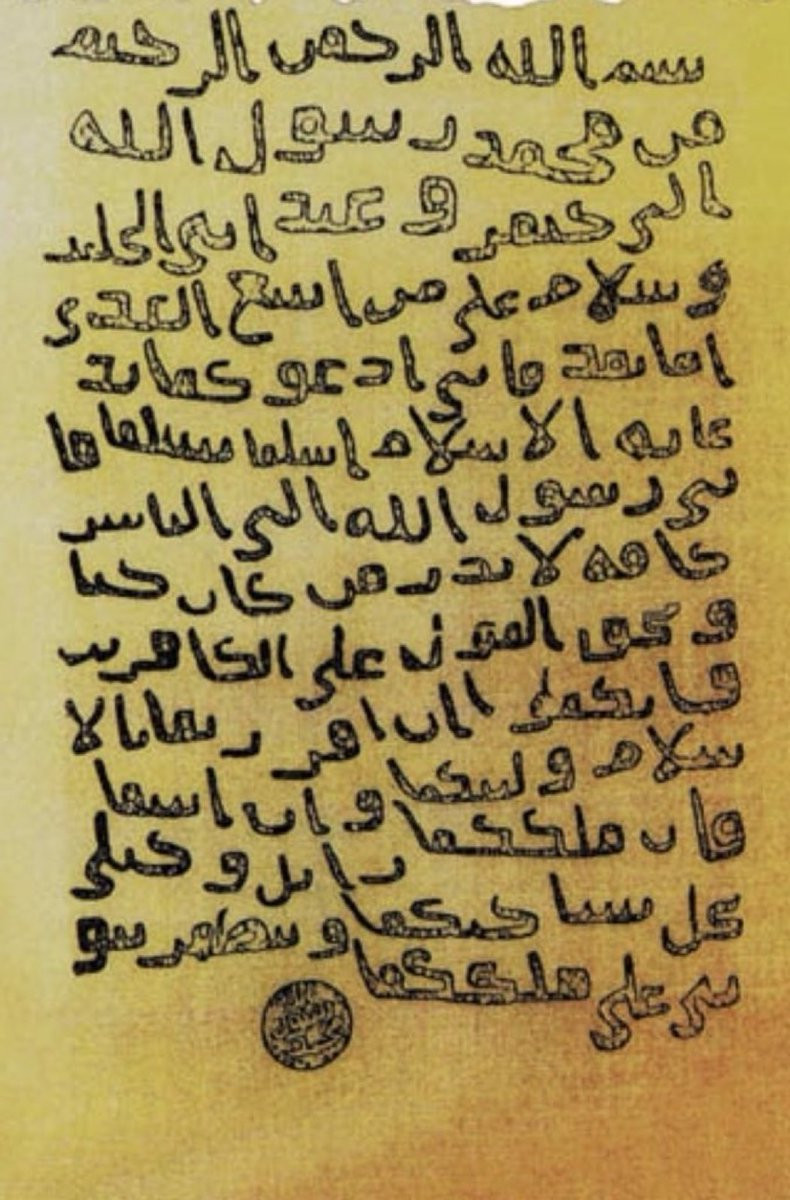 بسم الله الرحمن الرحيم
من محمد رسول الله
الى جيفر و عبد ابنى الجلند
و سلام على من اتبع الهدى
اما بعد فانى ادعوكما بد
عايه الاسلام اسلما تسلما فا
نى رسول الله الى الناس
كافه لانذر من كان حيا
و يحق القول على الكافرين
فانكما ان اقررتما بالا
سلام وليتكما وان ابيتما
فان ملككما زايل و خيلى
تحل بساحتكما و تظهر نبو
تى على ملككما